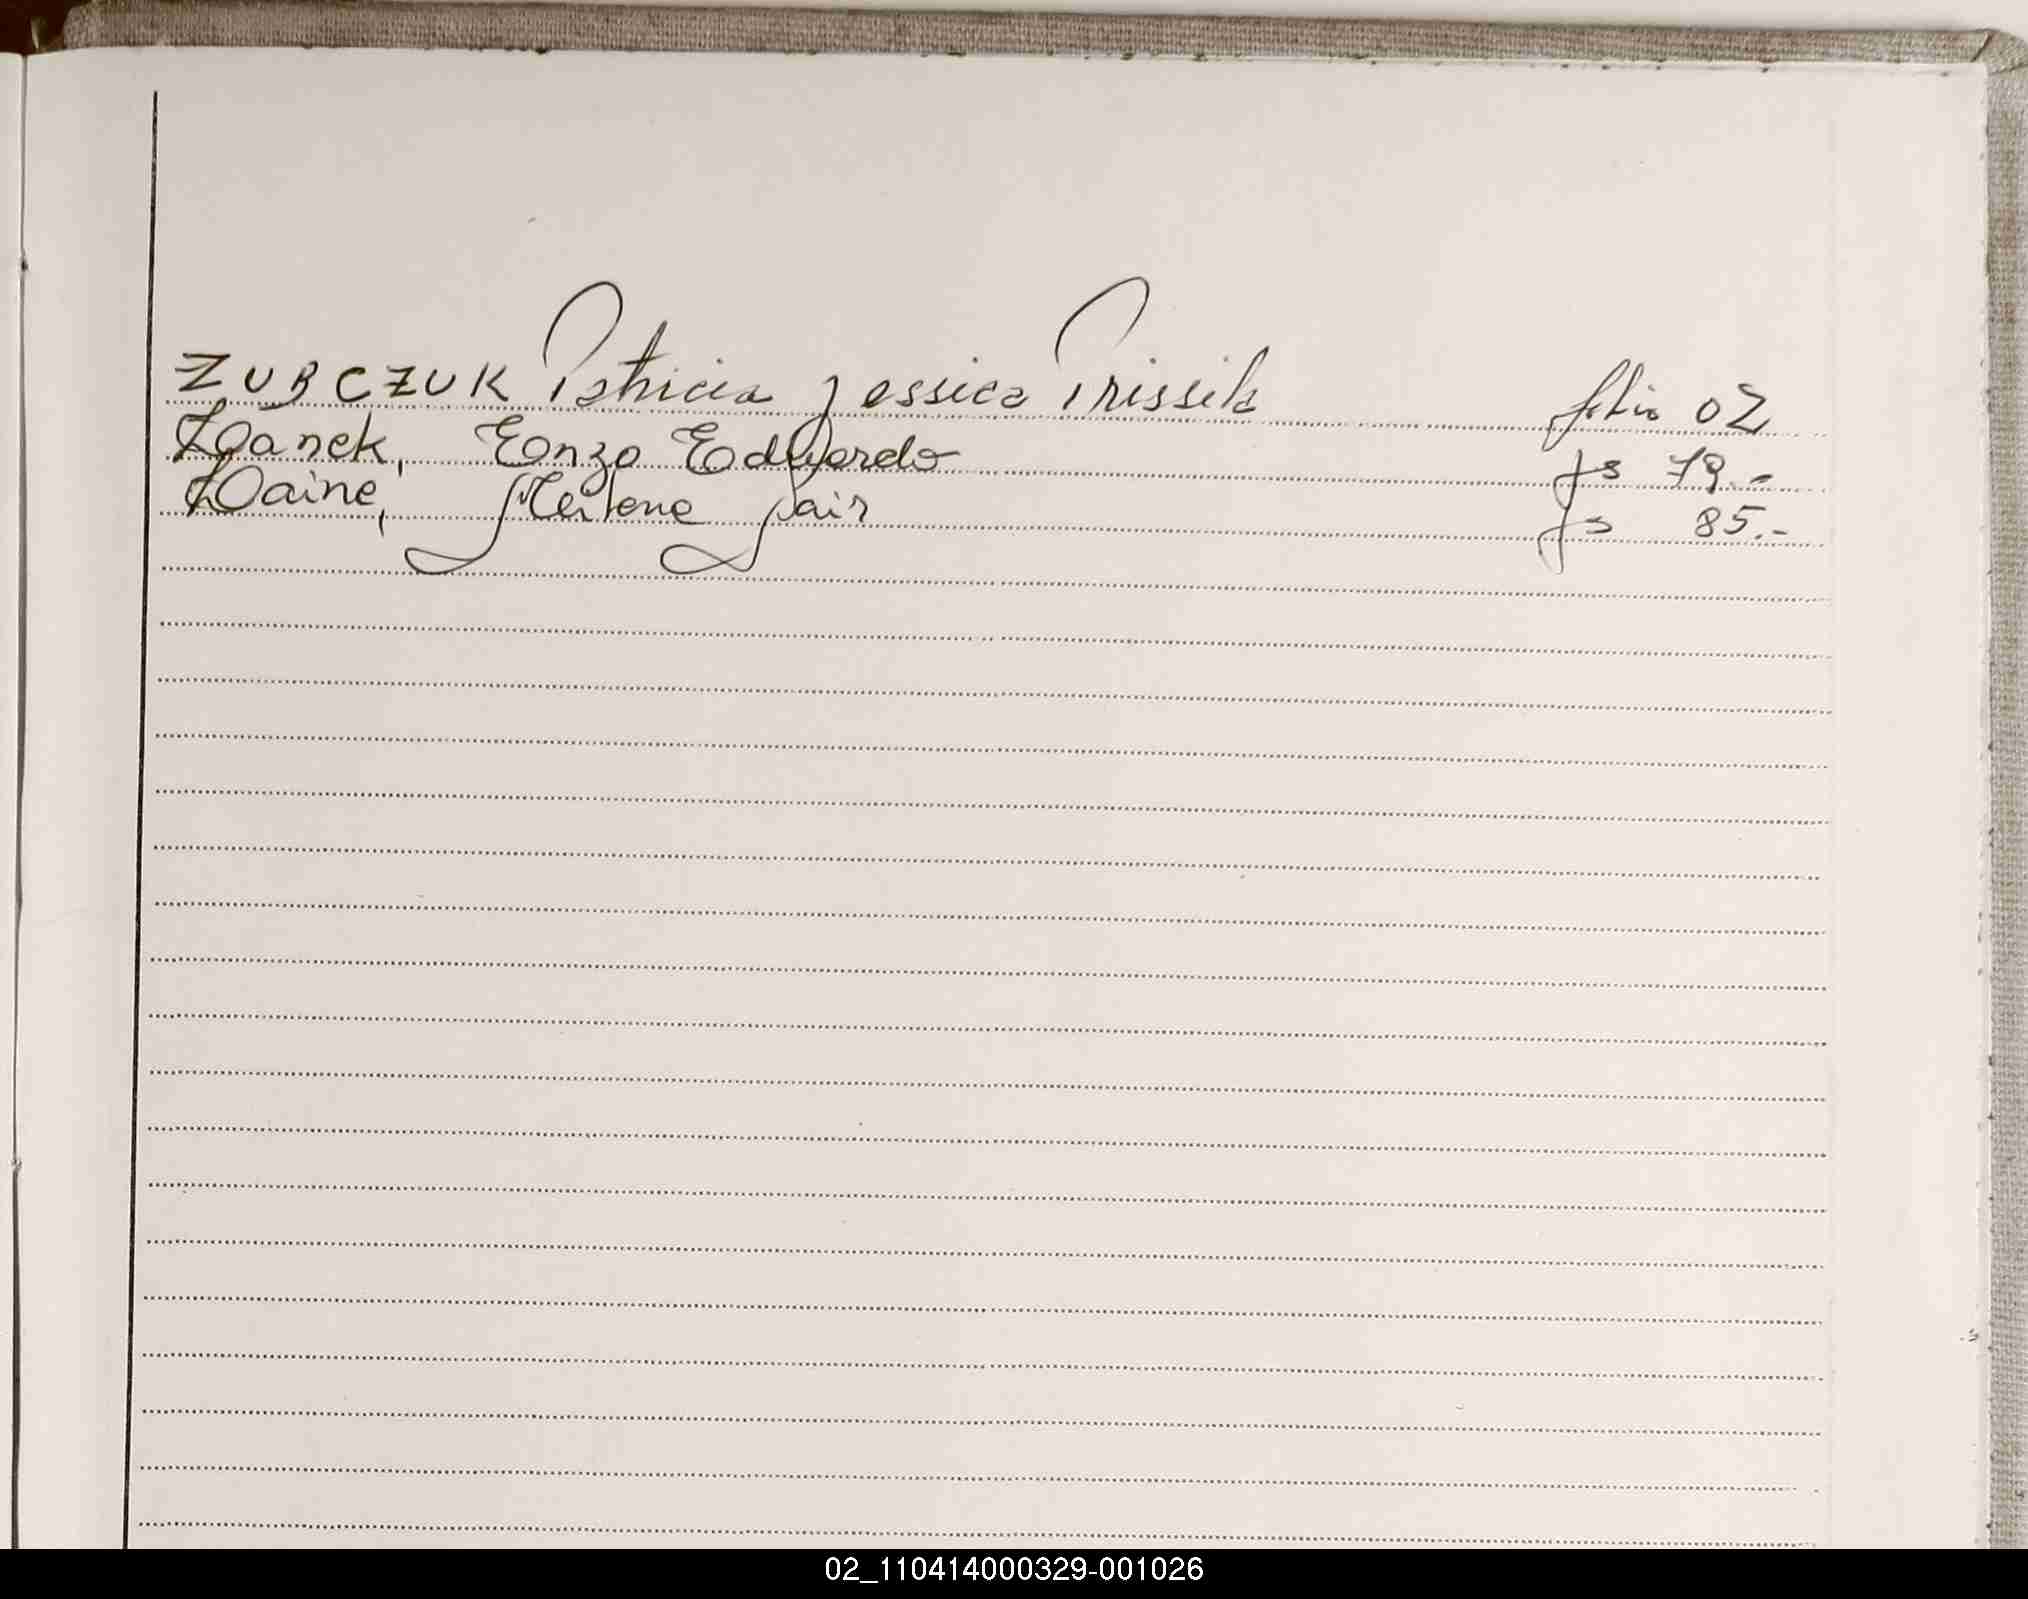 ZUBCZUK Patricia Jessica Prissila folio 02
Zanek, Enzo Eduardo fs 79.-
Zaine, Meilene Jair fs 85.-
02_110414000329-001026